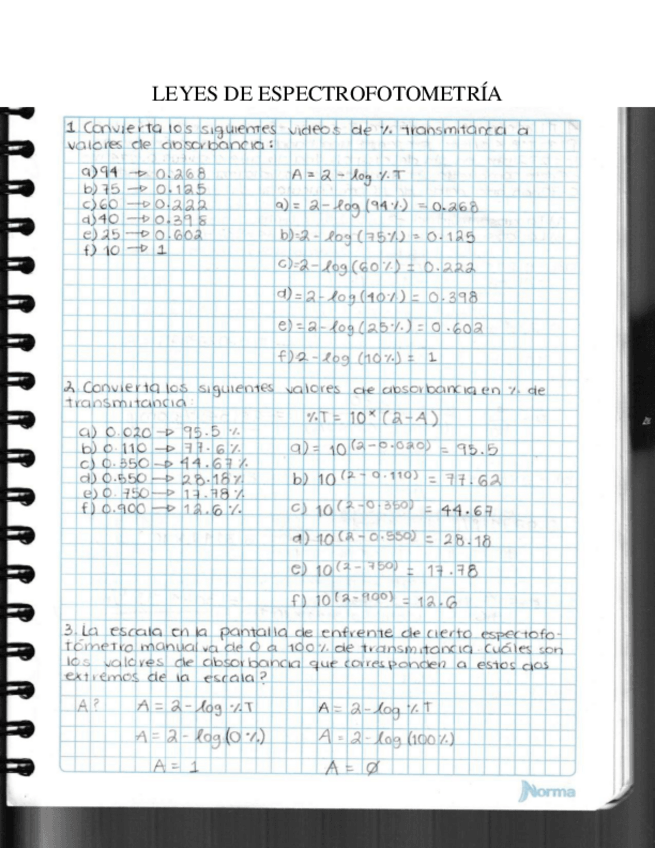 LEYES DE ESPECTROFOTOMETRÍA
1. Convierta los siguientes videos de % transmitancia a
valores de absorbancia:
a) 94 → 0.268
b) 75 → 0.125
c) 60 → 0.222
d) 40 → 0.398
e) 25 → 0.602
f) 10 → 1
A = 2 - log %T
a) = 2 - log (94%) = 0.268
b) = 2 - log (75%) = 0.125
c) = 2 - log (60%) = 0.222
d) = 2 - log (40%) = 0.398
e) = 2 - log (25%) = 0.602
f) 2 - log (10%) = 1
2. Convierta los siguientes valores de absorbancia en % de
transmitancia:
a) 0.020 → 95.5 %
b) 0.110 → 77.6 %
c) 0.350 → 44.67 %
d) 0.550 → 28.18 %
e) 0.750 → 17.78 %
f) 0.900 → 12.6 %
%T = 10^x (2-A)
a) = 10^(2-0.020) = 95.5
b) 10^(2-0.110) = 77.62
c) 10^(2-0.350) = 44.67
d) 10^(2-0.550) = 28.18
e) 10^(2-750) = 17.78
f) 10^(2-900) = 12.6
3. La escala en la pantalla de enfrente de cierto espectofo-
tómetro manual va de 0 a 100% de transmitancia. Cuáles son
los valores de absorbancia que corresponden a estos dos
extremos de la escala?
A? A = 2 - log %T A = 2 - log %T
A = 2 - log (0%) A = 2 - log (100%)
A = 1 A = 0
Norma